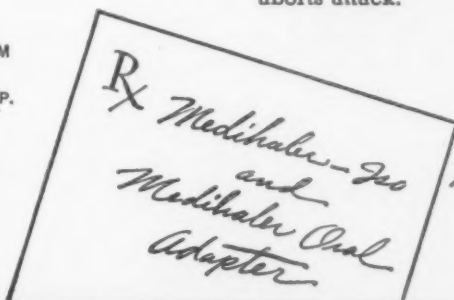 aborts attack.
M
P.
℞ Medihaler-Iso
and
Medihaler Oral
Adapter